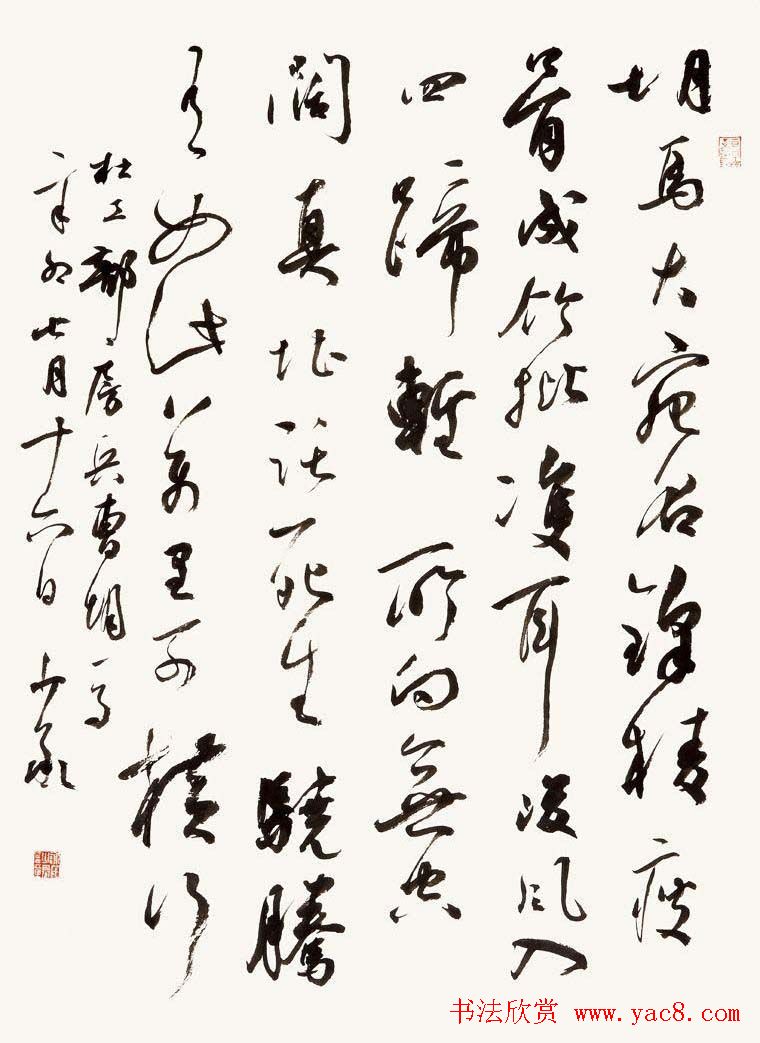 胡馬大宛名鋒棱瘦
骨成竹批雙耳峻風入
四蹄輕所向無空
闊真堪託死生驍騰
有如此萬里可橫行
杜工部房兵曹胡馬
辛卯七月十六日
书法欣赏 www.yac8.com